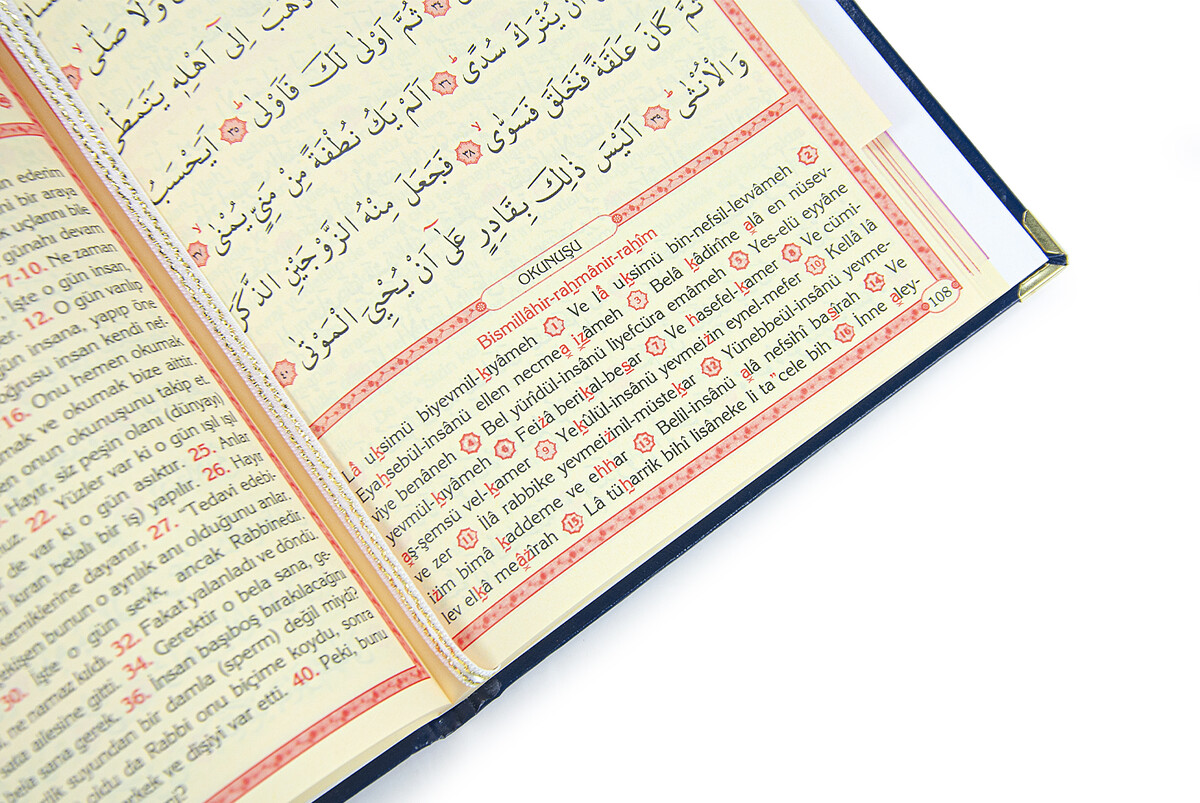 وَلَا صَلّٰىۙ
ذَهَبَ اِلٰٓى اَهْلِه۪ يَتَمَطّٰىۜ
ثُمَّ اَوْلٰى لَكَ فَاَوْلٰىۜ ﴿٣٥﴾ اَيَحْسَبُ
اَنْ يُتْرَكَ سُدًىۜ ﴿٣٦﴾ اَلَمْ يَكُ نُطْفَةً مِنْ مَنِيٍّ يُمْنٰىۙ ﴿٣٧﴾
ثُمَّ كَانَ عَلَقَةً فَخَلَقَ فَسَوّٰىۙ ﴿٣٨﴾ فَجَعَلَ مِنْهُ الزَّوْجَيْنِ الذَّكَرَ
وَالْاُنْثٰىۜ ﴿٣٩﴾ اَلَيْسَ ذٰلِكَ بِقَادِرٍ عَلٰٓى اَنْ يُحْيِيَ الْمَوْتٰى ﴿٤٠﴾
OKUNUŞU
Bismillâhir-rahmânir-rahîm
Lâ uksimü biyevmil-kıyâmeh 1 Ve lâ uksimü bin-nefsil-levvâmeh 2
Eyahsebül-insânü ellen necmea ızâmeh 3 Belâ kâdirîne alâ en nüsev-
viye benâneh 4 Bel yürîdül-insânü liyefcüra emâmeh 5 Yes-elü eyyâne
yevmül-kıyâmeh 6 Feizâ berikal-besar 7 Ve hasefel-kamer 8 Ve cümi-
aş-şemsü vel-kamer 9 Yekûlül-insânü yevmeizin eynel-mefer 10 Kellâ lâ
ve zer 11 İlâ rabbike yevmeizinil-müstekar 12 Yünebbeül-insânü yevme-
izim bimâ kaddeme ve ehhar 13 Belil-insânü alâ nefsihî basîrah 14 Ve
lev elkâ meâzîrah 15 Lâ tüharrik bihî lisâneke li ta"cele bih 16 İnne aley-
108
ederim
ni bir araya
k uçlarını bile
günahı devam
7-10. Ne zaman
İşte o gün insan,
12. O gün varılıp
gün insana, yapıp öne
oğrusu insan kendi nef-
16. Onu hemen okumak
mak ve okumak bize aittir.
en onun okunuşunu takip et.
Hayır, siz peşin olanı (dünyayı)
22. Yüzler var ki o gün ışıl ışıl
de var ki o gün asıktır. 25. Anlar
kıran belalı bir iş) yapılır. 26. Hayır
kemiklerine dayanır, 27. "Tedavi edebi-
bunun o ayrılık anı olduğunu anlar.
30. İşte o gün sevk, ancak Rabbinedir.
ne namaz kıldı. 32. Fakat yalanladı ve döndü.
ailesine gitti. 34. Gerektir o bela sana, ge-
bela sana gerek. 36. İnsan başıboş bırakılacağını
suyundan bir damla (sperm) değil miydi?
oldu da Rabbi onu biçime koydu, sonra
erkek ve dişiyi var etti. 40. Peki, bunu